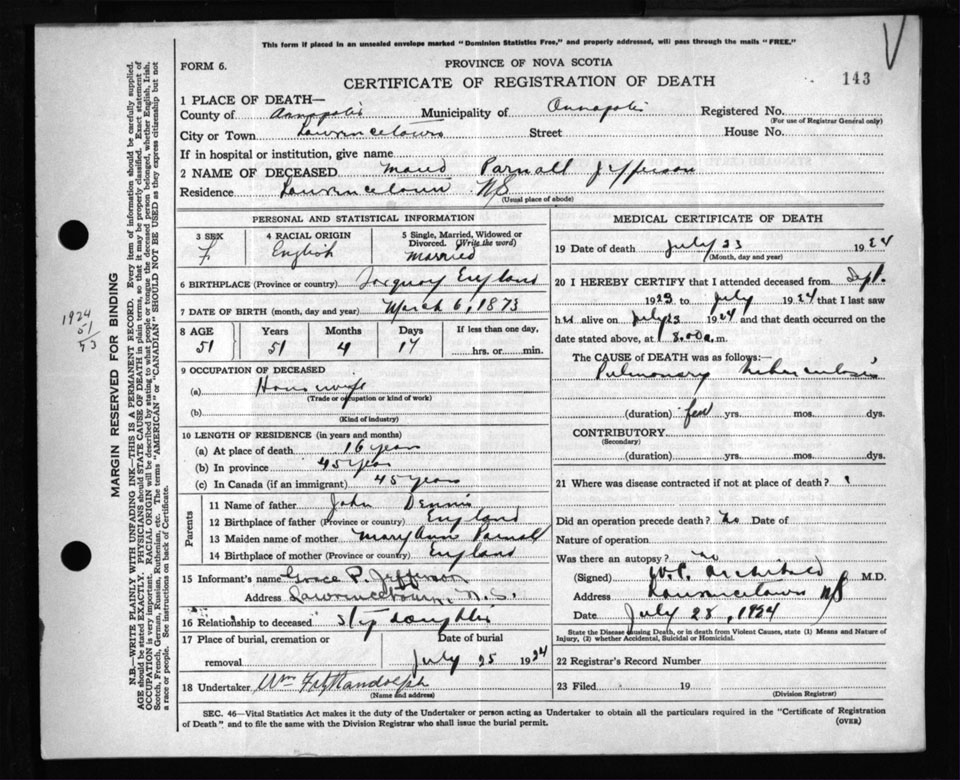 This form if placed in an unsealed envelope marked "Dominion Statistics Free," and properly addressed, will pass through the mails "FREE."
FORM 6.
PROVINCE OF NOVA SCOTIA
CERTIFICATE OF REGISTRATION OF DEATH
143
1 PLACE OF DEATH—
County of Annapolis Municipality of Annapolis Registered No.
(For use of Registrar General only)
City or Town Lawrencetown Street House No.
If in hospital or institution, give name
2 NAME OF DECEASED Maud Parnall Jefferson
Residence Lawrencetown NS
(Usual place of abode)
PERSONAL AND STATISTICAL INFORMATION
3 SEX
F
4 RACIAL ORIGIN
English
5 Single, Married, Widowed or Divorced. (Write the word)
Married
6 BIRTHPLACE (Province or country) Torquay England
7 DATE OF BIRTH (month, day and year) March 6, 1873
8 AGE Years Months Days If less than one day,
51 51 4 17 hrs. or min.
9 OCCUPATION OF DECEASED
(a) Housewife
(Trade or occupation or kind of work)
(b)
(Kind of industry)
10 LENGTH OF RESIDENCE (in years and months)
(a) At place of death 16 years
(b) In province 45 years
(c) In Canada (if an immigrant) 45 years
Parents
11 Name of father John Dennis
12 Birthplace of father (Province or country) England
13 Maiden name of mother Mary Ann Parnall
14 Birthplace of mother (Province or country) England
15 Informant's name Grace P. Jefferson
Address Lawrencetown, N.S.
16 Relationship to deceased step daughter
17 Place of burial, cremation or removal
Date of burial
July 25 1924
18 Undertaker Wm FitzRandolph
(Name and address)
MEDICAL CERTIFICATE OF DEATH
19 Date of death July 23 1924
(Month, day and year)
20 I HEREBY CERTIFY that I attended deceased from Sept.
1923 to July 1924 that I last saw
h alive on July 23 1924 and that death occurred on the
date stated above, at 8.00 a.m.
The CAUSE of DEATH was as follows:—
Pulmonary tuberculosis
(duration) few yrs. mos. dys.
CONTRIBUTORY
(Secondary)
(duration) yrs. mos. dys.
21 Where was disease contracted if not at place of death? ?
Did an operation precede death? No Date of
Nature of operation
Was there an autopsy? No
(Signed) Archibald M.D.
Address Lawrencetown NS
Date July 25, 1924
State the Disease causing Death, or in death from Violent Causes, state (1) Means and Nature of Injury, (2) whether Accidental, Suicidal or Homicidal.
22 Registrar's Record Number
23 Filed 19
(Division Registrar)
SEC. 46—Vital Statistics Act makes it the duty of the Undertaker or person acting as Undertaker to obtain all the particulars required in the "Certificate of Registration
of Death" and to file the same with the Division Registrar who shall issue the burial permit.
(OVER)
MARGIN RESERVED FOR BINDING
N.B.—WRITE PLAINLY WITH UNFADING INK—THIS IS A PERMANENT RECORD. Every item of information should be carefully supplied.
AGE should be stated EXACTLY. PHYSICIANS should STATE CAUSE OF DEATH in plain terms, so that it may be properly classified. Exact statement of
OCCUPATION is very important. RACIAL ORIGIN will be described by stating to what people or tongue the deceased person belonged, whether English, Irish,
Scotch, French, German, Russian, Ruthenian, etc. The terms "AMERICAN" or "CANADIAN" SHOULD NOT BE USED as they express citizenship but not
a race or people. See instructions on back of Certificate.
1924
51
73